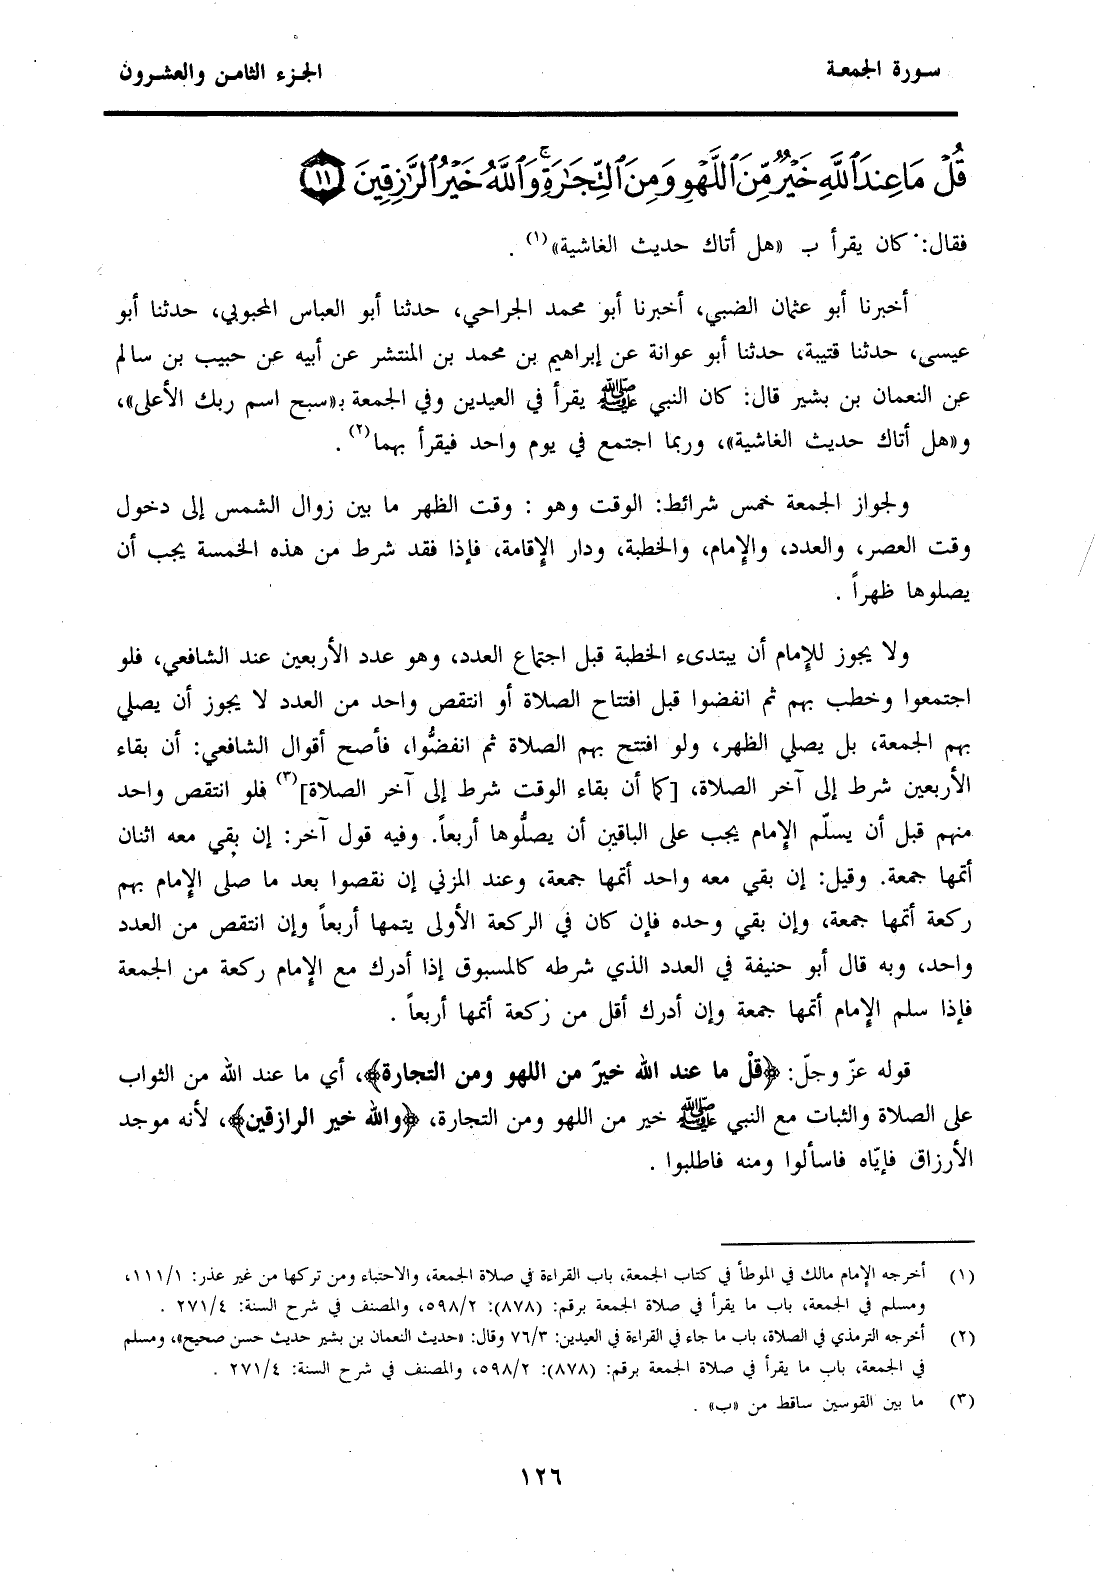 سورة الجمعة
الجزء الثامن والعشرون
قُلْ مَا عِندَ ٱللَّهِ خَيْرٌ مِّنَ ٱللَّهْوِ وَمِنَ ٱلتِّجَـٰرَةِ ۚ وَٱللَّهُ خَيْرُ ٱلرَّٰزِقِينَ ١١
فقال: كان يقرأ ب «هل أتاك حديث الغاشية»(١) .
أخبرنا أبو عثمان الضبي، أخبرنا أبو محمد الجراحي، حدثنا أبو العباس المحبوبي، حدثنا أبو
عيسى، حدثنا قتيبة، حدثنا أبو عوانة عن إبراهيم بن محمد بن المنتشر عن أبيه عن حبيب بن سالم
عن النعمان بن بشير قال: كان النبي ﷺ يقرأ في العيدين وفي الجمعة بـ«سبح اسم ربك الأعلى»،
و«هل أتاك حديث الغاشية»، وربما اجتمع في يوم واحد فيقرأ بهما(٢) .
ولجواز الجمعة خمس شرائط: الوقت وهو : وقت الظهر ما بين زوال الشمس إلى دخول
وقت العصر، والعدد، والإمام، والخطبة، ودار الإقامة، فإذا فقد شرط من هذه الخمسة يجب أن
يصلوها ظهراً .
ولا يجوز للإمام أن يبتدىء الخطبة قبل اجتماع العدد، وهو عدد الأربعين عند الشافعي، فلو
اجتمعوا وخطب بهم ثم انفضوا قبل افتتاح الصلاة أو انتقص واحد من العدد لا يجوز أن يصلي
بهم الجمعة، بل يصلي الظهر، ولو افتتح بهم الصلاة ثم انفضُّوا، فأصح أقوال الشافعي: أن بقاء
الأربعين شرط إلى آخر الصلاة، [كما أن بقاء الوقت شرط إلى آخر الصلاة](٣) فلو انتقص واحد
منهم قبل أن يسلّم الإمام يجب على الباقين أن يصلُّوها أربعاً. وفيه قول آخر: إن بقي معه اثنان
أتمها جمعة. وقيل: إن بقي معه واحد أتمها جمعة، وعند المزني إن نقصوا بعد ما صلى الإمام بهم
ركعة أتمها جمعة، وإن بقي وحده فإن كان في الركعة الأولى يتمها أربعاً وإن انتقص من العدد
واحد، وبه قال أبو حنيفة في العدد الذي شرطه كالمسبوق إذا أدرك مع الإمام ركعة من الجمعة
فإذا سلم الإمام أتمها جمعة وإن أدرك أقل من ركعة أتمها أربعاً .
قوله عزّ وجلّ: ﴿قلْ ما عند الله خيرٌ من اللهو ومن التجارة﴾، أي ما عند الله من الثواب
على الصلاة والثبات مع النبي ﷺ خير من اللهو ومن التجارة، ﴿والله خير الرازقين﴾، لأنه موجد
الأرزاق فإيّاه فاسألوا ومنه فاطلبوا .
(١) أخرجه الإمام مالك في الموطأ في كتاب الجمعة، باب القراءة في صلاة الجمعة، والاحتباء ومن تركها من غير عذر: ١١١/١،
ومسلم في الجمعة، باب ما يقرأ في صلاة الجمعة برقم: (٨٧٨): ٥٩٨/٢، والمصنف في شرح السنة: ٢٧١/٤ .
(٢) أخرجه الترمذي في الصلاة، باب ما جاء في القراءة في العيدين: ٧٦/٣ وقال: «حديث النعمان بن بشير حديث حسن صحيح»، ومسلم
في الجمعة، باب ما يقرأ في صلاة الجمعة برقم: (٨٧٨): ٥٩٨/٢، والمصنف في شرح السنة: ٢٧١/٤ .
(٣) ما بين القوسين ساقط من «ب» .
١٢٦